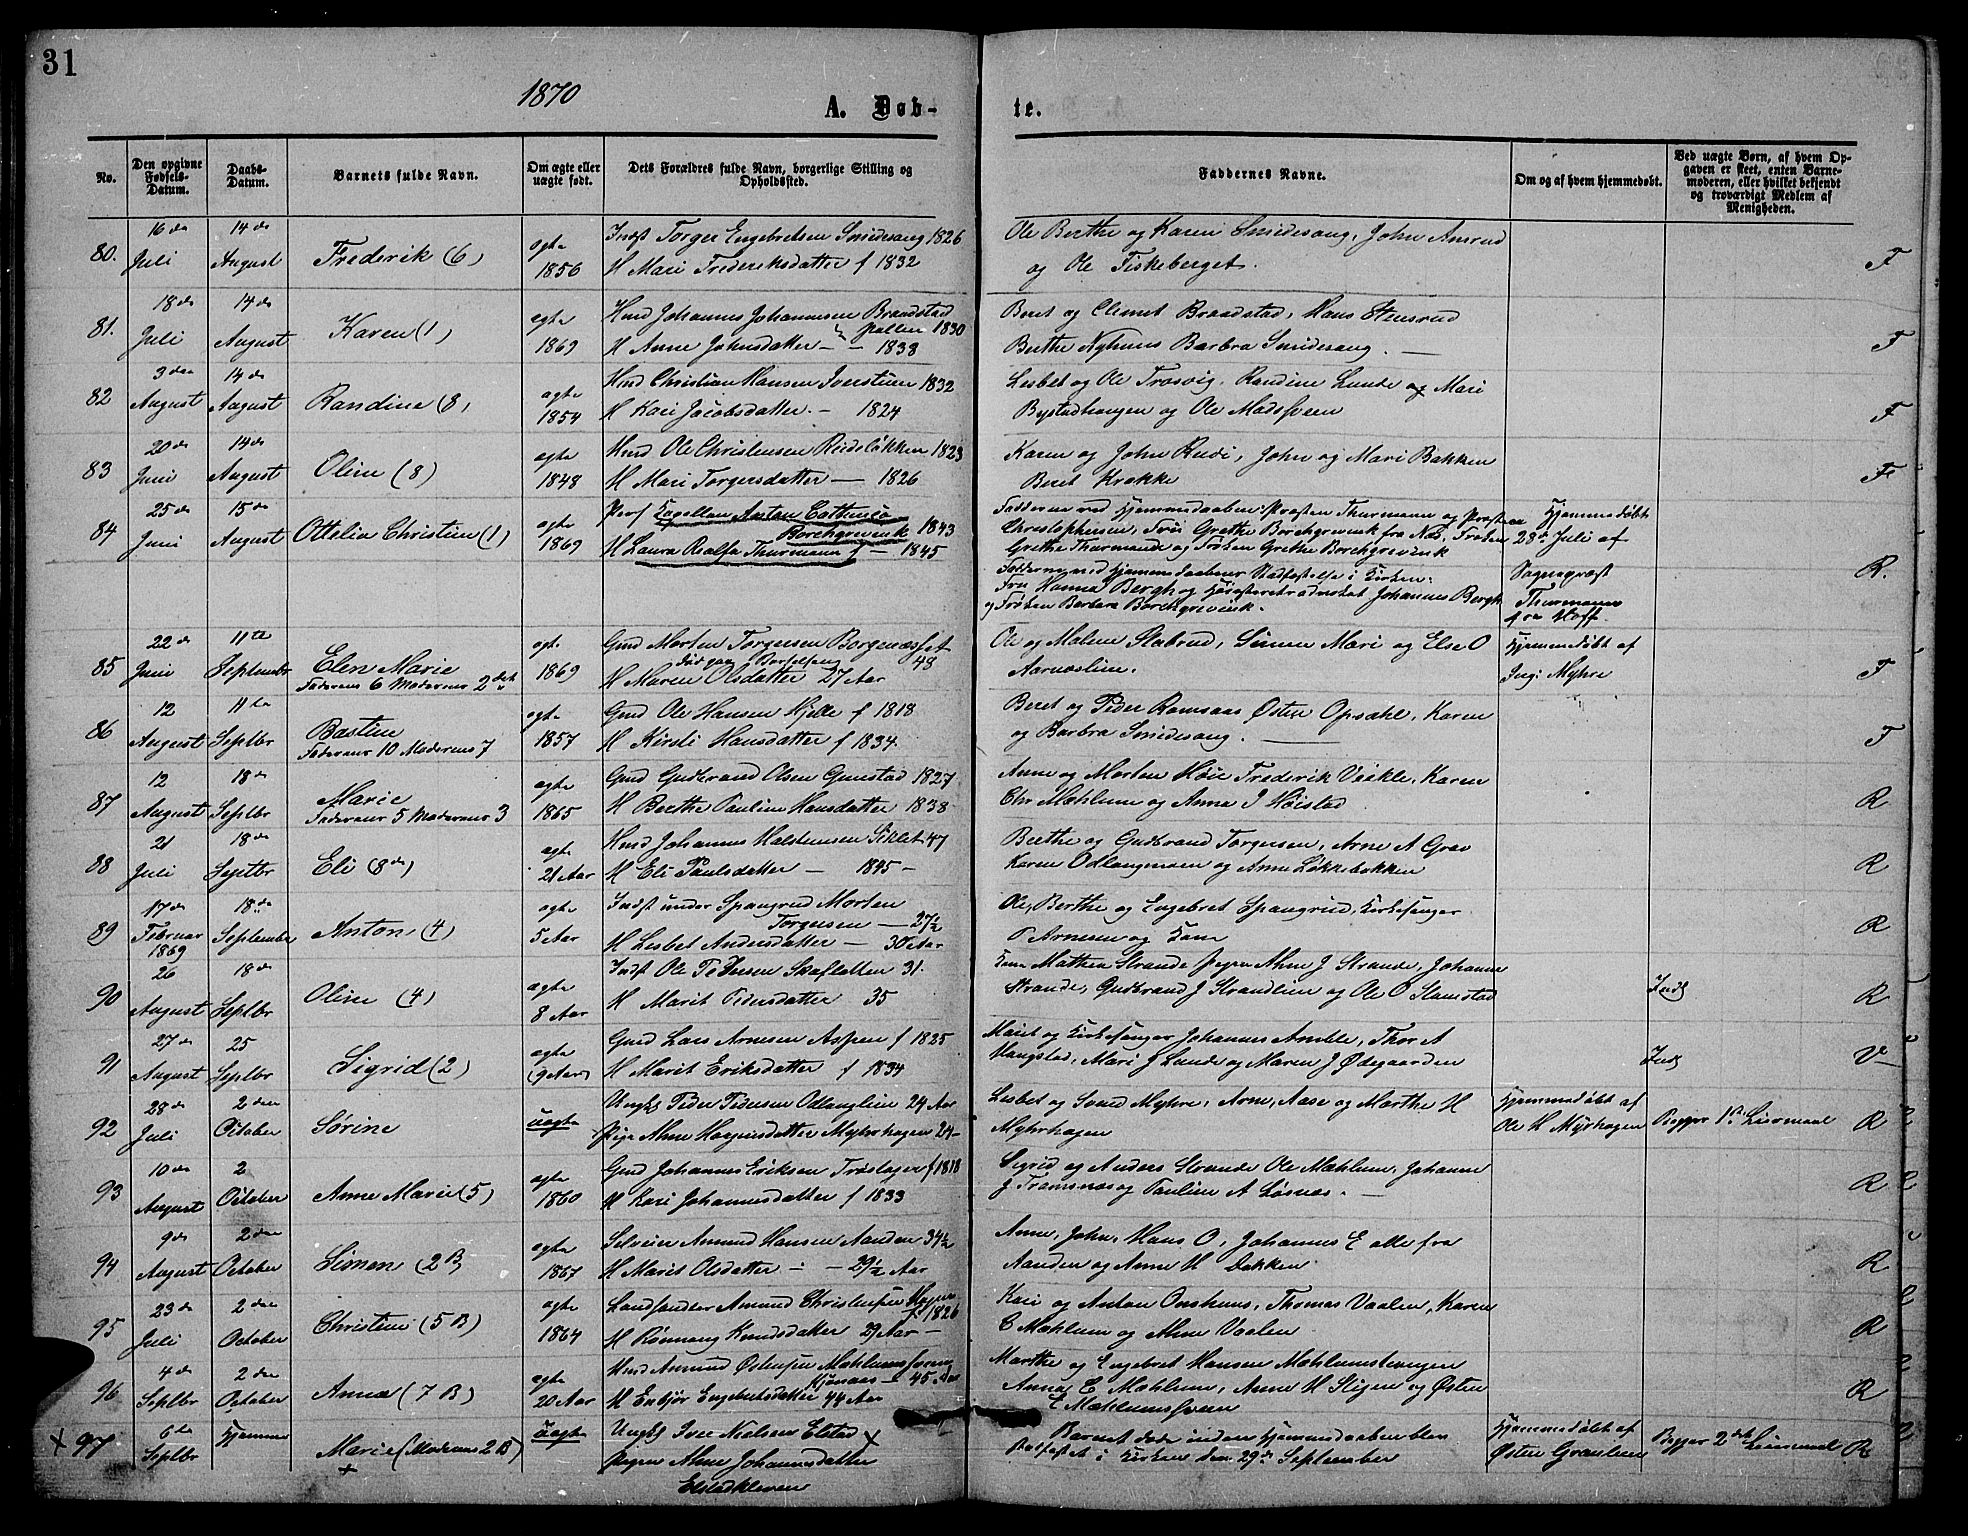 31
1870
A. Døb-
te.
No.
Den opgivne Fødsels-Datum.
Daabs-Datum.
Barnets fulde Navn.
Om ægte eller uægte født.
Dets Forældres fulde Navn, borgerlige Stilling og Opholdssted.
Faddernes Navne.
Om og af hvem hjemmedøbt.
Ved uægte Børn, af hvem Op-
gaven er skeet, enten Barne-
moderen, eller hvilket bekjendt
og troværdigt Medlem af
Menigheden.
80. 16de Juli 14de August Frederik (6) ægte 1856
Indst Torger Engebretsen Smidesang 1826
H Mari Frederiksdatter f 1832
Ole Berthe og Karen Smidesang, John Amrud
og Ole Fiskeberget. F
81. 18de Juli 14de August Karen (1) ægte 1869
Hmd Johannes Johannesen Brandstad
pallen 1830
H Anne Johnsdatter — 1838
Beret og Clemet Brandstad, Hans Stensrud
Berthe Nyhuus Barbra Smidesang. — F
82 3die August 14de August Randine (8) ægte 1854
Hmd Christian Hansen Iverstuen 1832
H Kari Jacobsdatter. — 1824
Lisbet og Ole Trosvig, Randine Lunde og Mari
Bystadhaugen og Ole Madssveen F
83 20de Juni 14de August Oline (8) ægte 1848
Hmd Ole Christensen Reideløkken 1823
H Mari Torgersdatter — 1826
Karen og John Rudi, John og Mari Bakken
Beret Krække F
84 25de Juni 15de August Ottelia Christine (1) ægte 1869
Pers Capellan Anton Cathinco
Borchgrevink 1843
H Laura Realfa Thurmann f — 1845
Fadderne ved Hjemmedaaben: Præsten Thurmann og Præsten
Christophersen, Frøi Grethe Borchgrevink fra Næs, Frøken
Grethe Thurmann og Frøken Grethe Borchgrevink
Fadderne ved Hjemmedaabens Stadfæstelse i Kirken:
Fru Hanna Bergh og Høiesteretsadvokat Johannes Bergh
og Frøken Barbara Borchgrevink.
Hjemmedøbt
28de Juli af
Sognepræst
Thurmann
fra Hoff. R.
85 22de Juni 11te Septembr Elen Marie
Faderens 6 Moderens 2det ægt. 1869
Gmd Morten Torgersen Borgenæsset
48
H Maren Olsdatter 27 Aar
Ole og Malene Stabrud, Simen Mari og Else O
Aarnæslien.
Hjemmedøbt af
Ing: Myhre F
86 12 August 11te Septbr Bastian
Faderens 10 Moderens 7 ægte 1857
Gmd Ole Hansen Hjelle f 1818
H Kirsti Hansdatter f 1834.
Beret og Peder Ramsaas Østen Opsahl, Karen
og Barbra Smidesang. — F
87 12 August 18de Septbr Marie
Faderens 5 Moderens 3 ægte 1865
Gmd Gudbrand Olsen Gunstad 1827
H Berthe Pauline Hansdatter 1838
Anne og Morten Høie Frederik Veikle, Karen
Chr Mæhlum og Anna J Høistad R
88 21 Juli 18de Septbr Eli (8de) ægte 21 Aar
Hmd Johannes Halstensen Siklet 47
H Eli Paulsdatter — 1845 —
Berthe og Gudbrand Torgersen, Arne A Grav
Karen Odlangmoen og Anne Løkkebakken R
89 17de Februar 1869 18de September Anton (4) ægte 5 Aar
Indst under Spangrud Morten
Torgersen — 27½
H Lisbet Andersdatter — 30 Aar
Ole, Berthe og Engebret Spangrud, Kirkesanger
P Arnesen og Kone R
90 26 August 18de Septbr Oline (4) ægte 8 Aar
Indst Ole Pedersen Skafletten 31.
H Marit Pedersdatter 35
Kone Mathea Strande Pigen Ahne J Strande, Johanne
Strande, Gudbrand J Strandlien og Ole O Stamstad
Inds R
91 27de August 25 Septbr Sigrid (2) ægte (9 Aar)
Gmd Lars Arnesen Aspen f 1825
H Marit Eriksdatter f 1834
Marit og Kirkesanger Johannes Amble, Thor A
Haugstad, Mari J Lunde og Maren J Ødegaarden
Inds V
92 28de Juli 2den October Sørine uægte
Ungk Peder Pedersen Odlanglien 24 Aar
Pige Ahne Haagensdatter Myhrhagen 24 —
Lisbet og Svend Myhre, Arne, Aase og Marthe H
Myhrhagen
Hjemmedøbt af
Ole H Myrhagen Begges 1ste Leiermaal R
93 10de August 2 October Anne Marie (5) ægte 1860
Gmd Johannes Eriksen Troslager f 1818
H Kari Johannesdatter f 1833
Sigrid og Anders Strande Ole Mæhlum, Johanne
J Tramsnæs og Pauline A Lørnæs. — R
94 9de August 2den October Simen (2 B) ægte 1867
Selveier Amund Hansen Aanden 34½
H Marit Olsdatter — 29½ Aar
Anne, John, Hans O, Johannes E alle fra
Aanden og Anne H Dokken R
95 23de Juli 2den October Christine (5 B) ægte 1864
Amund Christensen
1826
H Rønnaug Knudsdatter 29 Aar —
Kari og Anton Onshuus, Thomas Vaalen, Karen
C Mæhlum og Ahne Vaalen R
96 4de Septbr 2den October Anna (7 B) ægte 20 Aar
Hmd Amund Østensen Mæhlumssveen
45 Aar
H Enbjør Engebretsdatter 44 Aar
Marthe og Engebret Hansen Mæhlumsteugen
Anna E Mæhlum, Anne H Stigen og Østen
E Mæhlumssveen R
x 97 6te Septbr Hjemme Marie (Moderens 2 B) x uægte
Ungk Iver Nielsen Elstad x
Pigen Ahne Johannesdatter
Elstadkleven
Barnet døde inden Hjemmedaaben blev
Stadfæstet i Kirken den 29de September
Hjemmedøbt af
Østen Graulien Begges 2det Leiermaal R